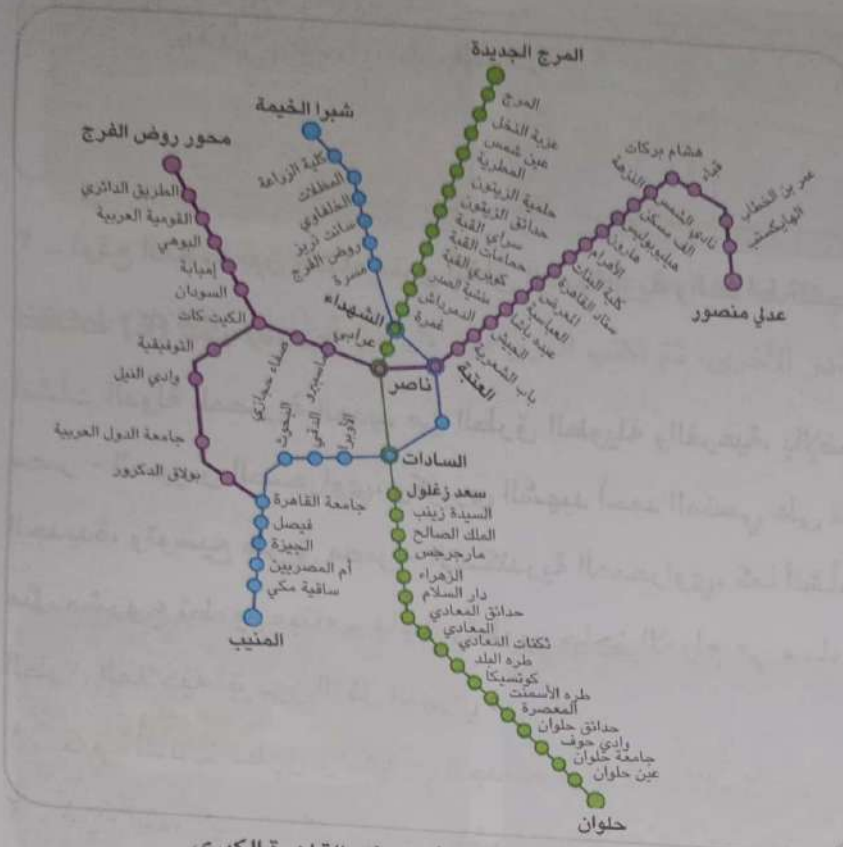 المرج الجديدة
المرج
عزبة النخل
عين شمس
المطرية
حلمية الزيتون
حدائق الزيتون
سراي القبة
حمامات القبة
كوبري القبة
منشية الصدر
الدمرداش
غمرة
الشهداء
عرابي
ناصر
السادات
سعد زغلول
السيدة زينب
الملك الصالح
مارجرجس
الزهراء
دار السلام
حدائق المعادي
المعادي
ثكنات المعادي
طره البلد
كوتسيكا
طره الأسمنت
المعصرة
حدائق حلوان
وادي حوف
جامعة حلوان
عين حلوان
حلوان
شبرا الخيمة
كلية الزراعة
المظلات
الخلفاوي
سانت تريز
روض الفرج
مسرة
العتبة
الأوبرا
الدقي
البحوث
جامعة القاهرة
فيصل
الجيزة
أم المصريين
ساقية مكي
المنيب
محور روض الفرج
الطريق الدائري
القومية العربية
البوهي
إمبابة
السودان
الكيت كات
صفاء حجازي
ماسبيرو
التوفيقية
وادي النيل
جامعة الدول العربية
بولاق الدكرور
باب الشعرية
الجيش
عبده باشا
العباسية
المعرض
ستاد القاهرة
كلية البنات
الأهرام
هارون
هيليوبوليس
ألف مسكن
نادي الشمس
النزهة
هشام بركات
قباء
عمر بن الخطاب
الهايكستب
عدلي منصور
القاهرة الكبرى